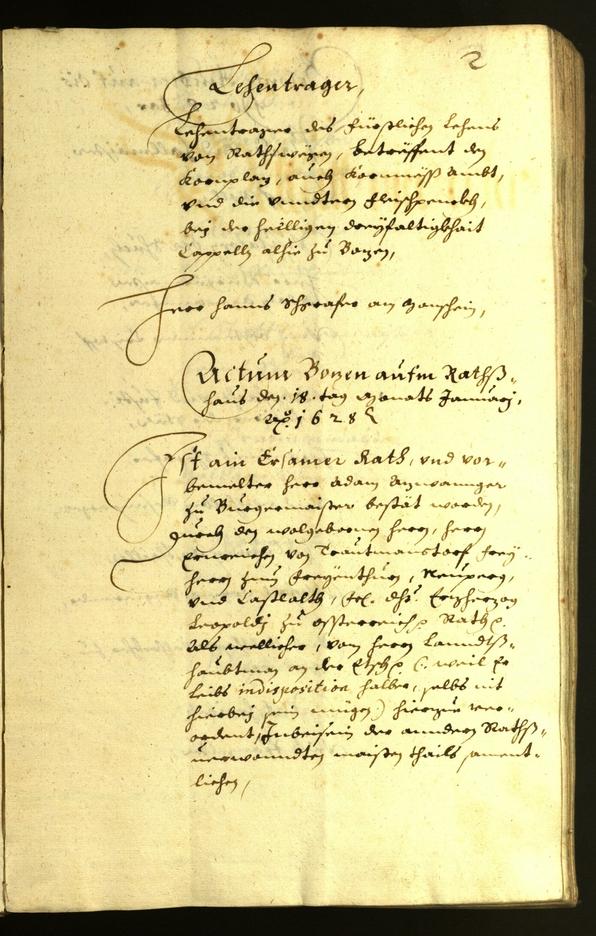 2
Lehentrager,
Lehentrager des fürstlichen Lehens
von Rathswegen, betreffent den
Kornplaz, auch Kornmess ambt,
vnd die vnndtern Fleischpenckh,
bej der heilligen dreyfaltigkhait
Cappelln alhie zu Bozen,
Herr Hanns Schrafer am
Actum Bozen aufm Rathß-
hauß den 18. tag Monats Januarj,
Ao. 1628
Ist ain Ersamer Rath, vnd vor-
bemelter Herr Adam
zu Burgermaister bestät worden,
durch den wolgebornen Herrn, Herrn
von Trautmanstorf frey-
herrn zum Freyenthurn, Neuperg,
vnd Castlalth, Erzherzog
Leopoldj zu Össterreich Rath
als wellicher, von Herrn Lanndtß-
haubtman an der Etsch (: weil Er
Leibs indisposition halber, selbs nit
hierbej sein mügen:) hierzue ver-
ordent, Inbeisein der anndern Rathß-
verwanndten maisten thails